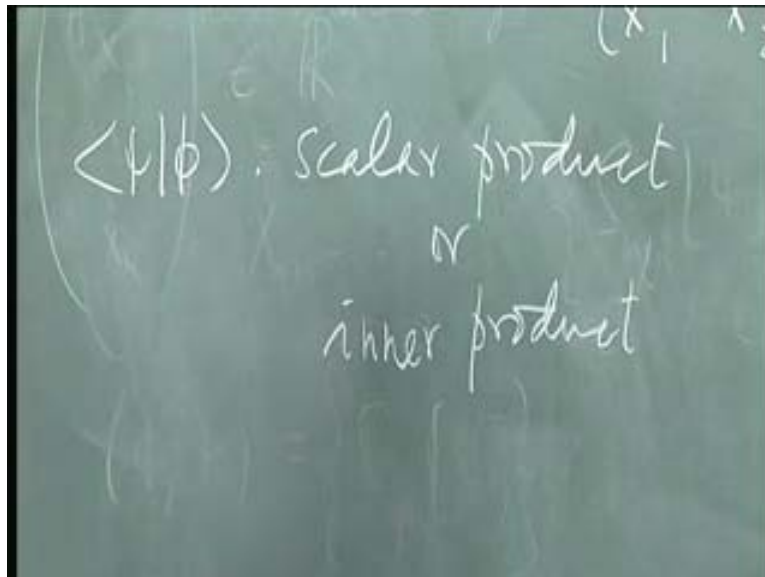 (x₁ x₂
∈ ℝ
<ψ|ϕ>. scalar product
or
inner product